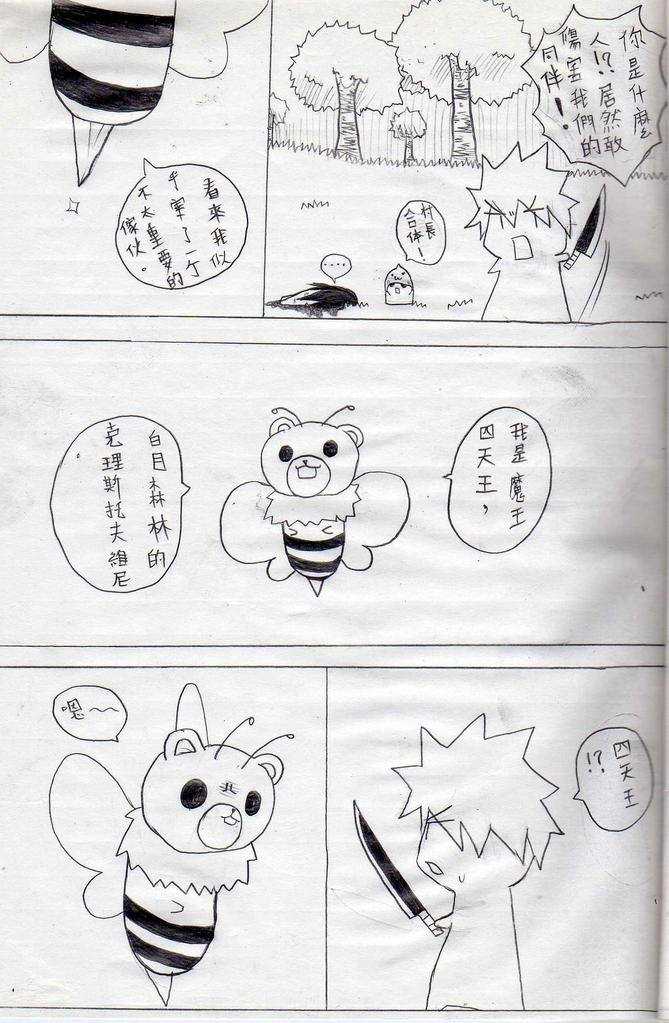 你是什麼
人!?居然敢
傷害我們的
同伴!
村長
合体!
....
看來我似
乎宰了一个
不太重要的
傢伙。
我是魔王
四天王，
白目森林的
克理斯托夫維尼
。
四天王
!?
嗯～～